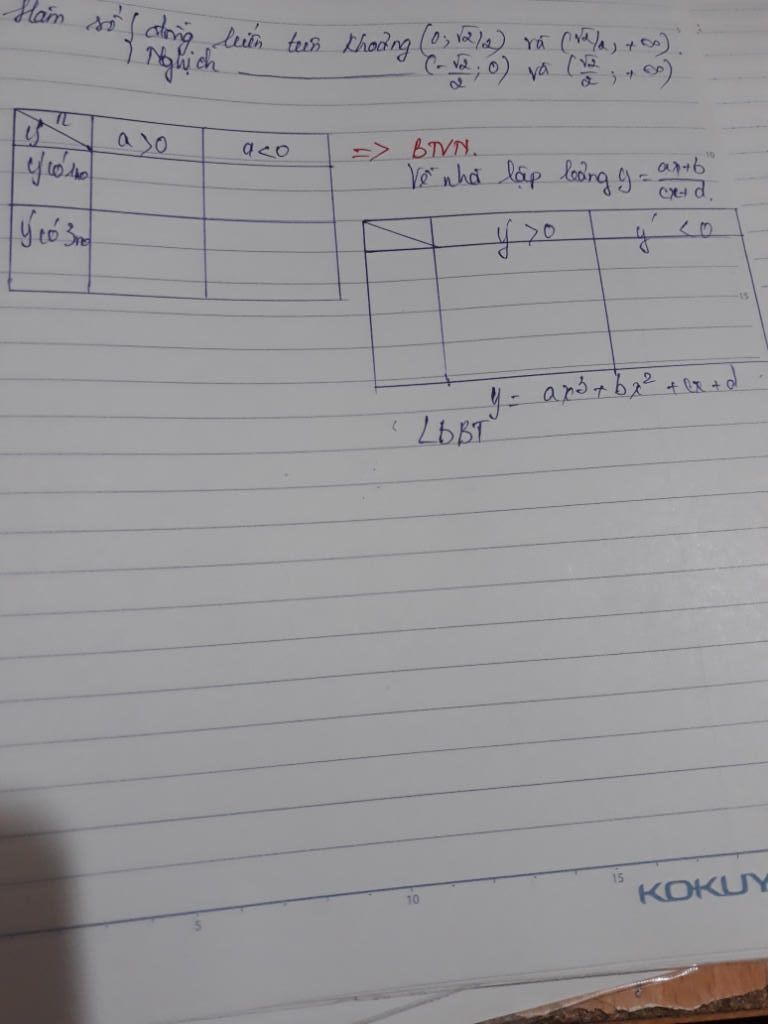 Hàm số { đồng biến trên khoảng (0; √2/2) và (√2/2; +∞).
Nghịch ________ (-√2/2; 0) và (√2/2; +∞)
y'
a>0
a<0
y' có 1no
y' có 3no
=> BTVN.
Về nhà lập bảng y = (ax+b)/(cx+d).
y' >0
y' <0
y = ax³ + bx² + cx + d
BBT
5
10
15
KOKUY